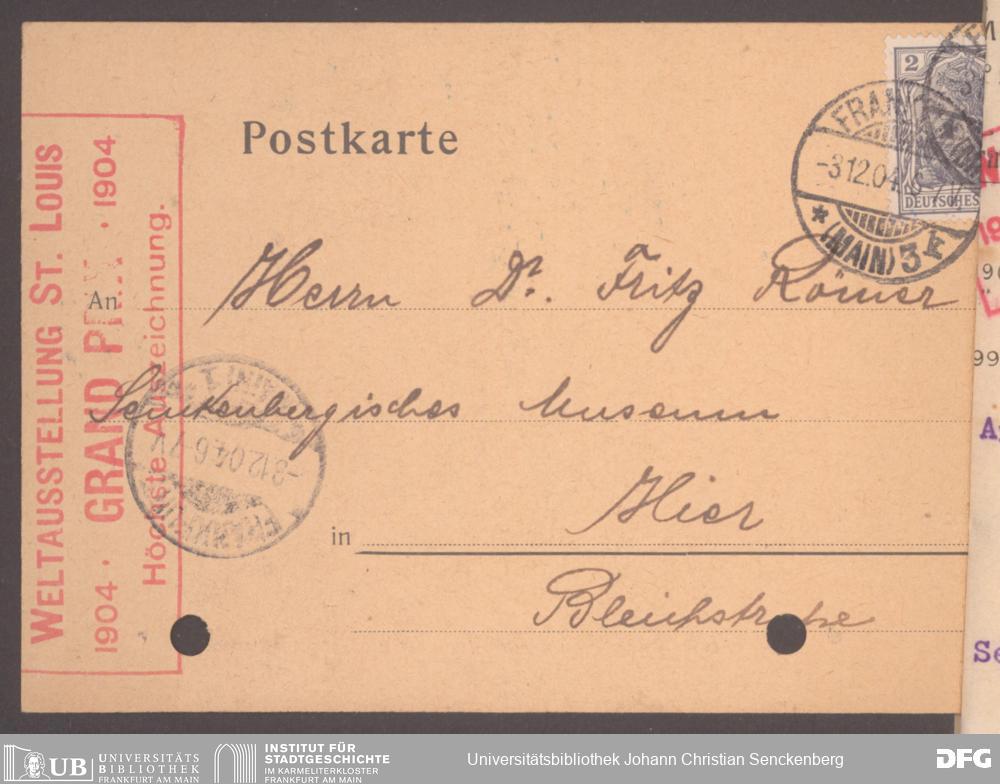 Postkarte
WELTAUSSTELLUNG ST. LOUIS
1904 · GRAND PRIX · 1904
Höchste Auszeichnung.
2
DEUTSCHES
FRAN
-3.12.04
(MAIN) 3 F
An Herrn Dr. Fritz Römer
Senckenbergisches Museum
in Hier
Bleichstraße
-3.12.04.6-7V
UB
UNIVERSITÄTS
BIBLIOTHEK
FRANKFURT AM MAIN
INSTITUT FÜR
STADTGESCHICHTE
IM KARMELITERKLOSTER
FRANKFURT AM MAIN
Universitätsbibliothek Johann Christian Senckenberg
DFG